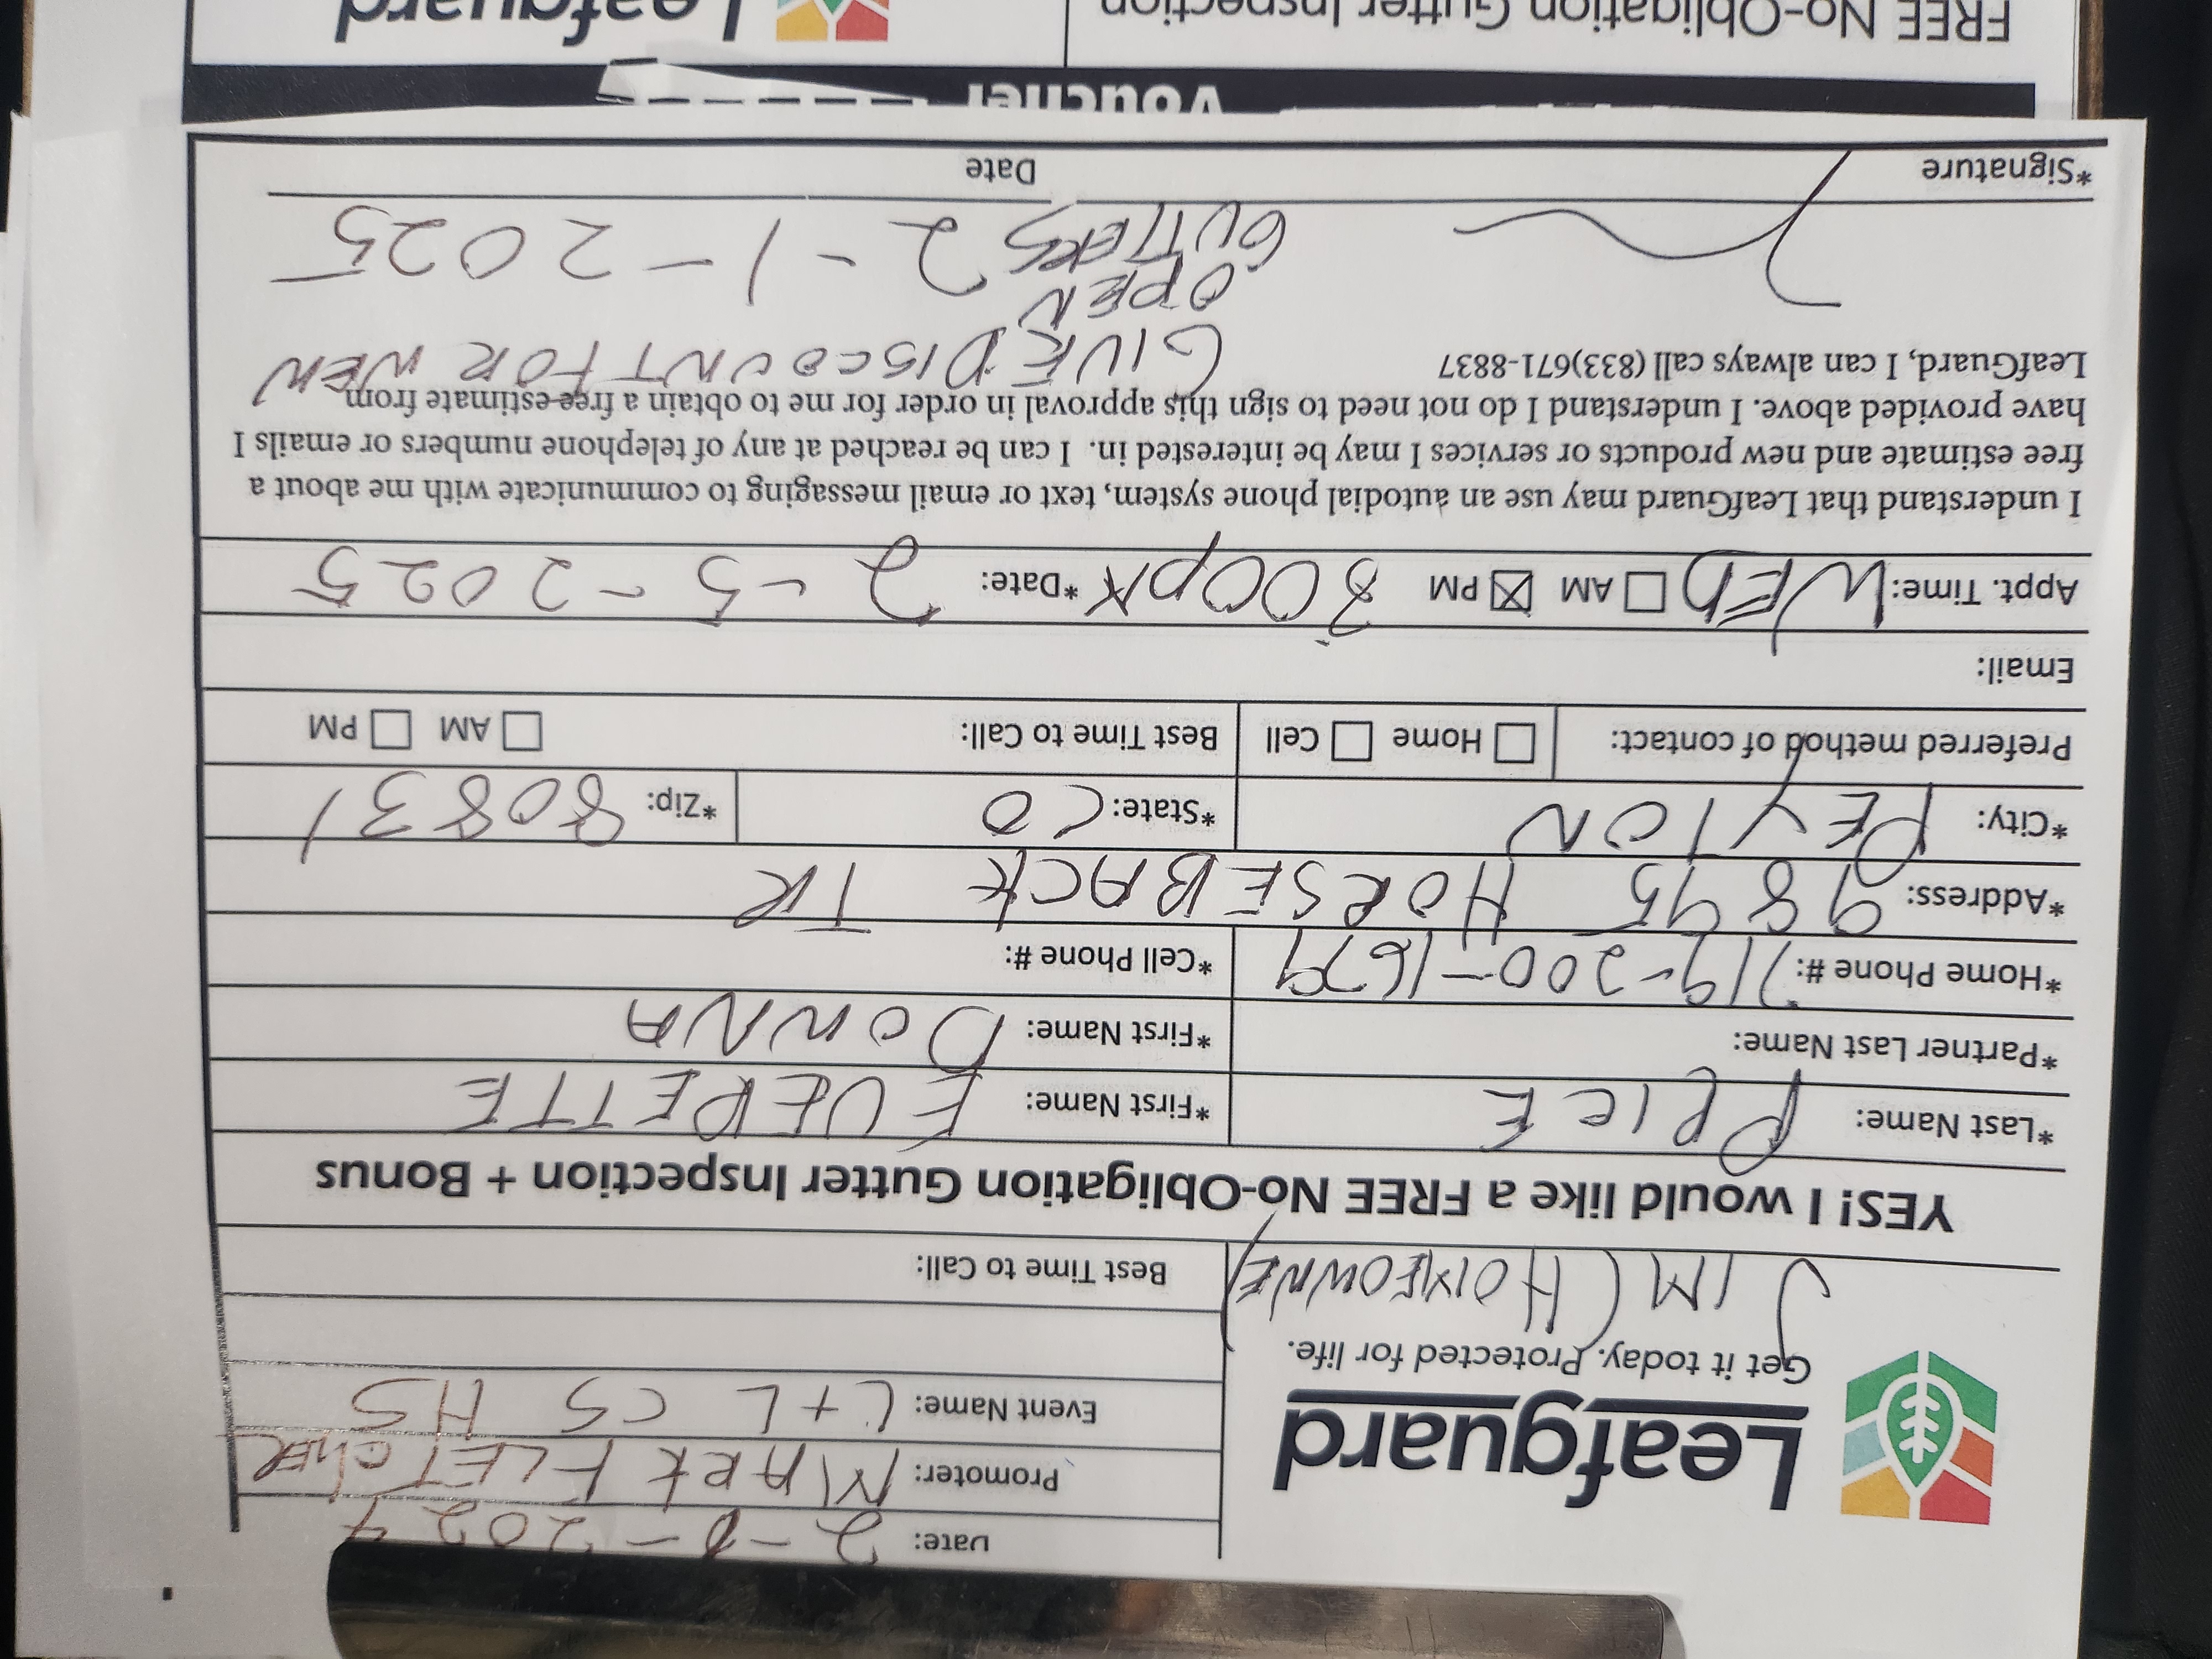 Leafguard
Get it today. Protected for life.
JIM (HOMEOWNER)
Date: 2-1-2024
Promoter: MARK FLETCHER
Event Name: L+L CS HS
Best Time to Call:
YES! I would like a FREE No-Obligation Gutter Inspection + Bonus
*Last Name: PRICE *First Name: EVERETTE
*Partner Last Name: *First Name: DONNA
*Home Phone #: 719-200-1679 *Cell Phone #:
*Address: 9895 HORSEBACK TR
*City: PEYTON *State: CO *Zip: 80831
Preferred method of contact: Home Cell Best Time to Call: AM PM
Email:
Appt. Time: WED AM PM 300PM *Date: 2-5-2025
I understand that LeafGuard may use an autodial phone system, text or email messaging to communicate with me about a
free estimate and new products or services I may be interested in. I can be reached at any of telephone numbers or emails I
have provided above. I understand I do not need to sign this approval in order for me to obtain a free estimate from
LeafGuard, I can always call (833)671-8837
GIVE DISCOUNT FOR NEW
OPEN
GUTTERS
2-1-2025
*Signature Date
Voucher
Leafguard
FREE No-Obligation Gutter Inspection